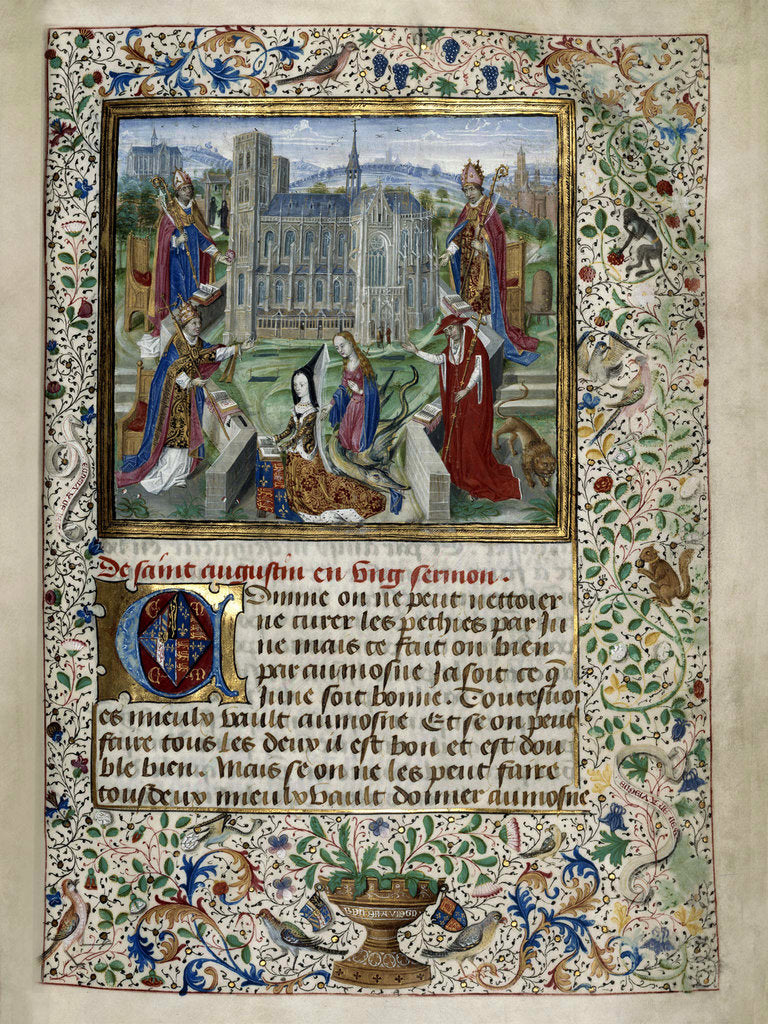 De saint augustin en ung sermon.
Comme on ne peut nettoier
ne curer les pechies par Ju
ne mais ce fait on bien
par aumosne Ja soit ce q̄
June soit bonne. Toutesuoi
es mieulx vault aumosne Et se on peut
faire tous les deux il est bon et est dou
ble bien. Mais se on ne les peut faire
tous deux mieulx vault donner aumosne